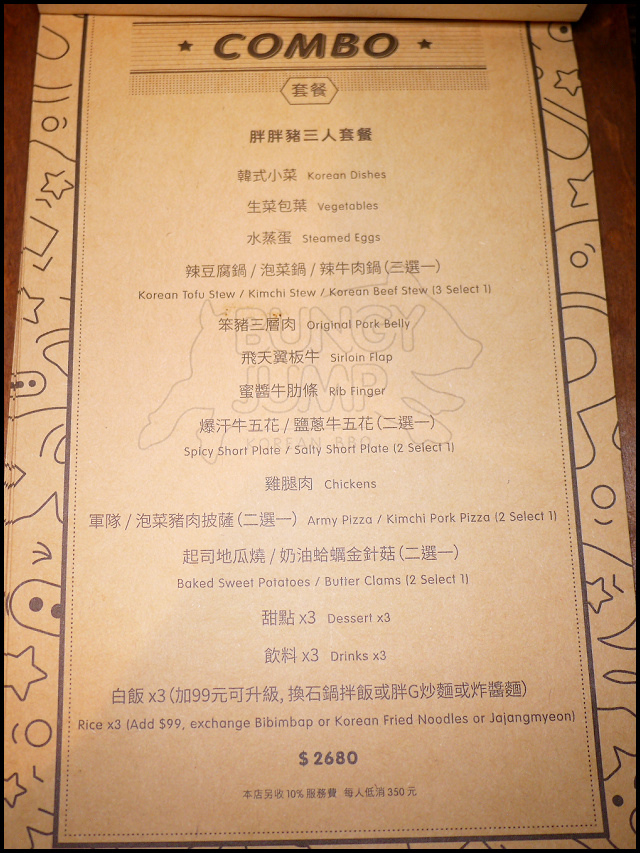 ★ COMBO ★
套餐
胖胖豬三人套餐
韓式小菜 Korean Dishes
生菜包葉 Vegetables
水蒸蛋 Steamed Eggs
辣豆腐鍋 / 泡菜鍋 / 辣牛肉鍋 (三選一)
Korean Tofu Stew / Kimchi Stew / Korean Beef Stew (3 Select 1)
笨豬三層肉 Original Pork Belly
飛天翼板牛 Sirloin Flap
蜜醬牛肋條 Rib Finger
爆汗牛五花 / 鹽蔥牛五花 (二選一)
Spicy Short Plate / Salty Short Plate (2 Select 1)
雞腿肉 Chickens
軍隊 / 泡菜豬肉披薩 (二選一) Army Pizza / Kimchi Pork Pizza (2 Select 1)
起司地瓜燒 / 奶油蛤蠣金針菇 (二選一)
Baked Sweet Potatoes / Butter Clams (2 Select 1)
甜點 x3 Dessert x3
飲料 x3 Drinks x3
白飯 x3 (加99元可升級, 換石鍋拌飯或胖G炒麵或炸醬麵)
Rice x3 (Add $99, exchange Bibimbap or Korean Fried Noodles or Jajangmyeon)
$ 2680
本店另收10%服務費 每人低消350元
BUNGY
JUMP
KOREAN BBQ